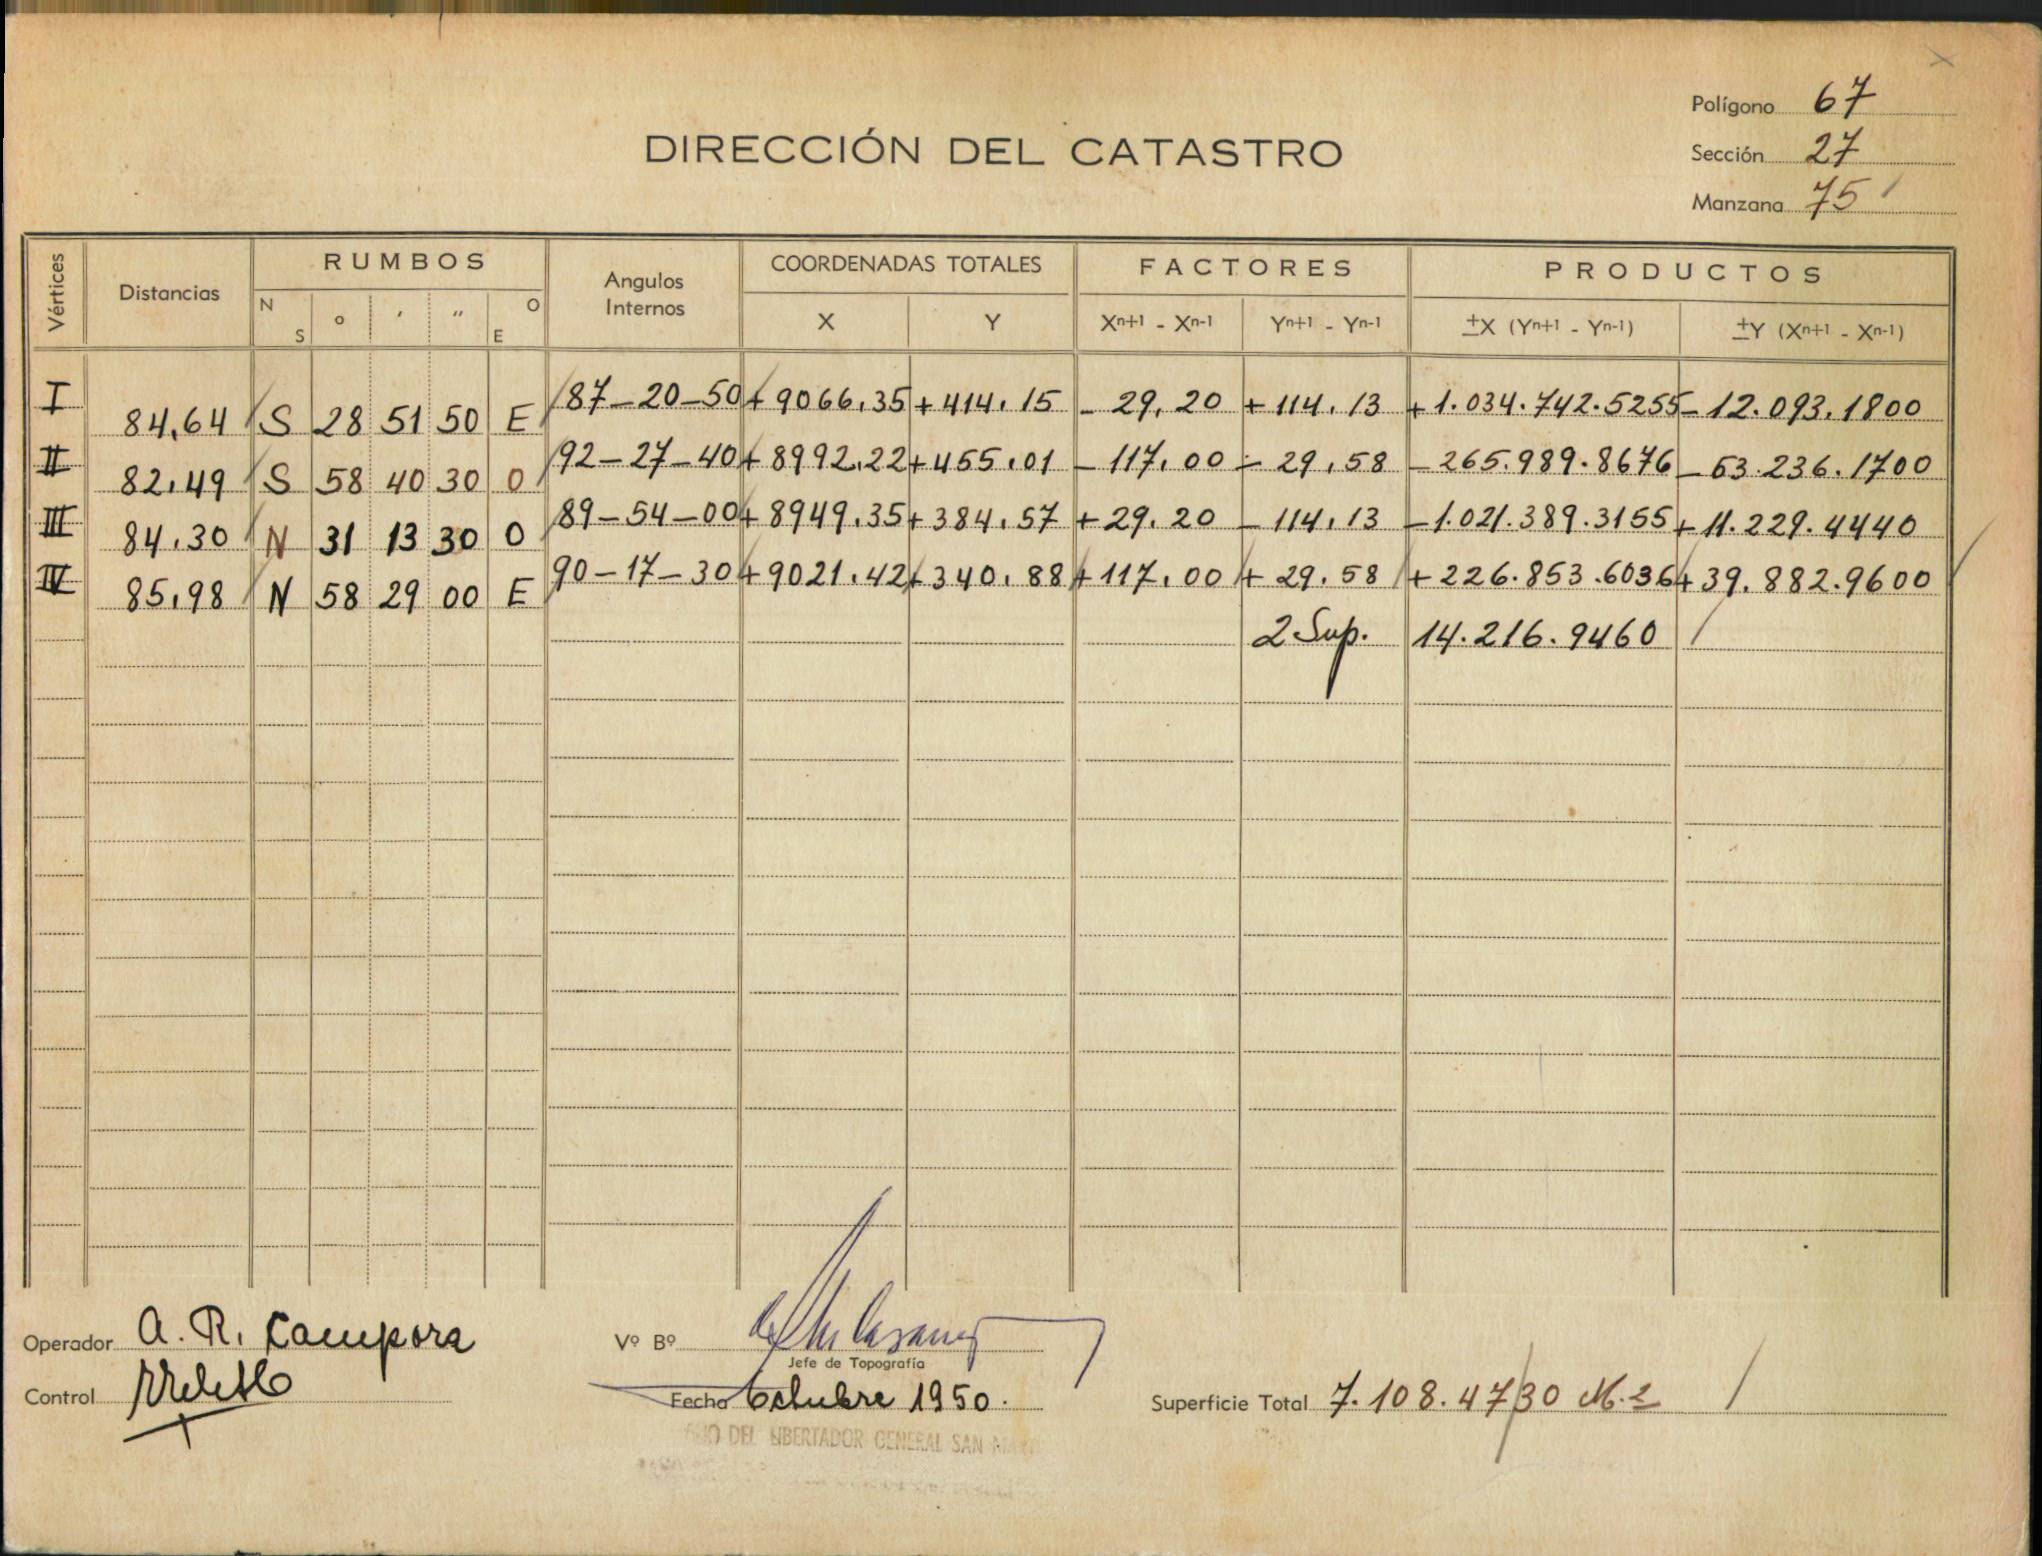 Polígono 67
DIRECCIÓN DEL CATASTRO
Sección 27
Manzana 75
Vértices Distancias RUMBOS Angulos Internos COORDENADAS TOTALES FACTORES PRODUCTOS
N S ° ' " O E X Y Xn+1 - Xn-1 Yn+1 - Yn-1 ±X (Yn+1 - Yn-1) ±Y (Xn+1 - Xn-1)
I 84,64 S 28 51 50 E 87-20-50 +9066,35 +414,15 -29,20 +114,13 +1.034.742.5255 -12.093.1800
II 82,49 S 58 40 30 O 92-27-40 +8992,22 +455,01 -117,00 -29,58 -265.989.8676 -53.236.1700
III 84,30 N 31 13 30 O 89-54-00 +8949,35 +384,57 +29,20 -114,13 -1.021.389.3155 +11.229.4440
IV 85,98 N 58 29 00 E 90-17-30 +9021,42 +340,88 +117,00 +29,58 +226.853.6036 +39.882.9600
2 Sup. 14.216.9460
Operador A. R. Campora
Vº Bº
Jefe de Topografía
Control
Fecha Octubre 1950.
Superficie Total 7.108.47/30 M.2
DEL LIBERTADOR GENERAL SAN